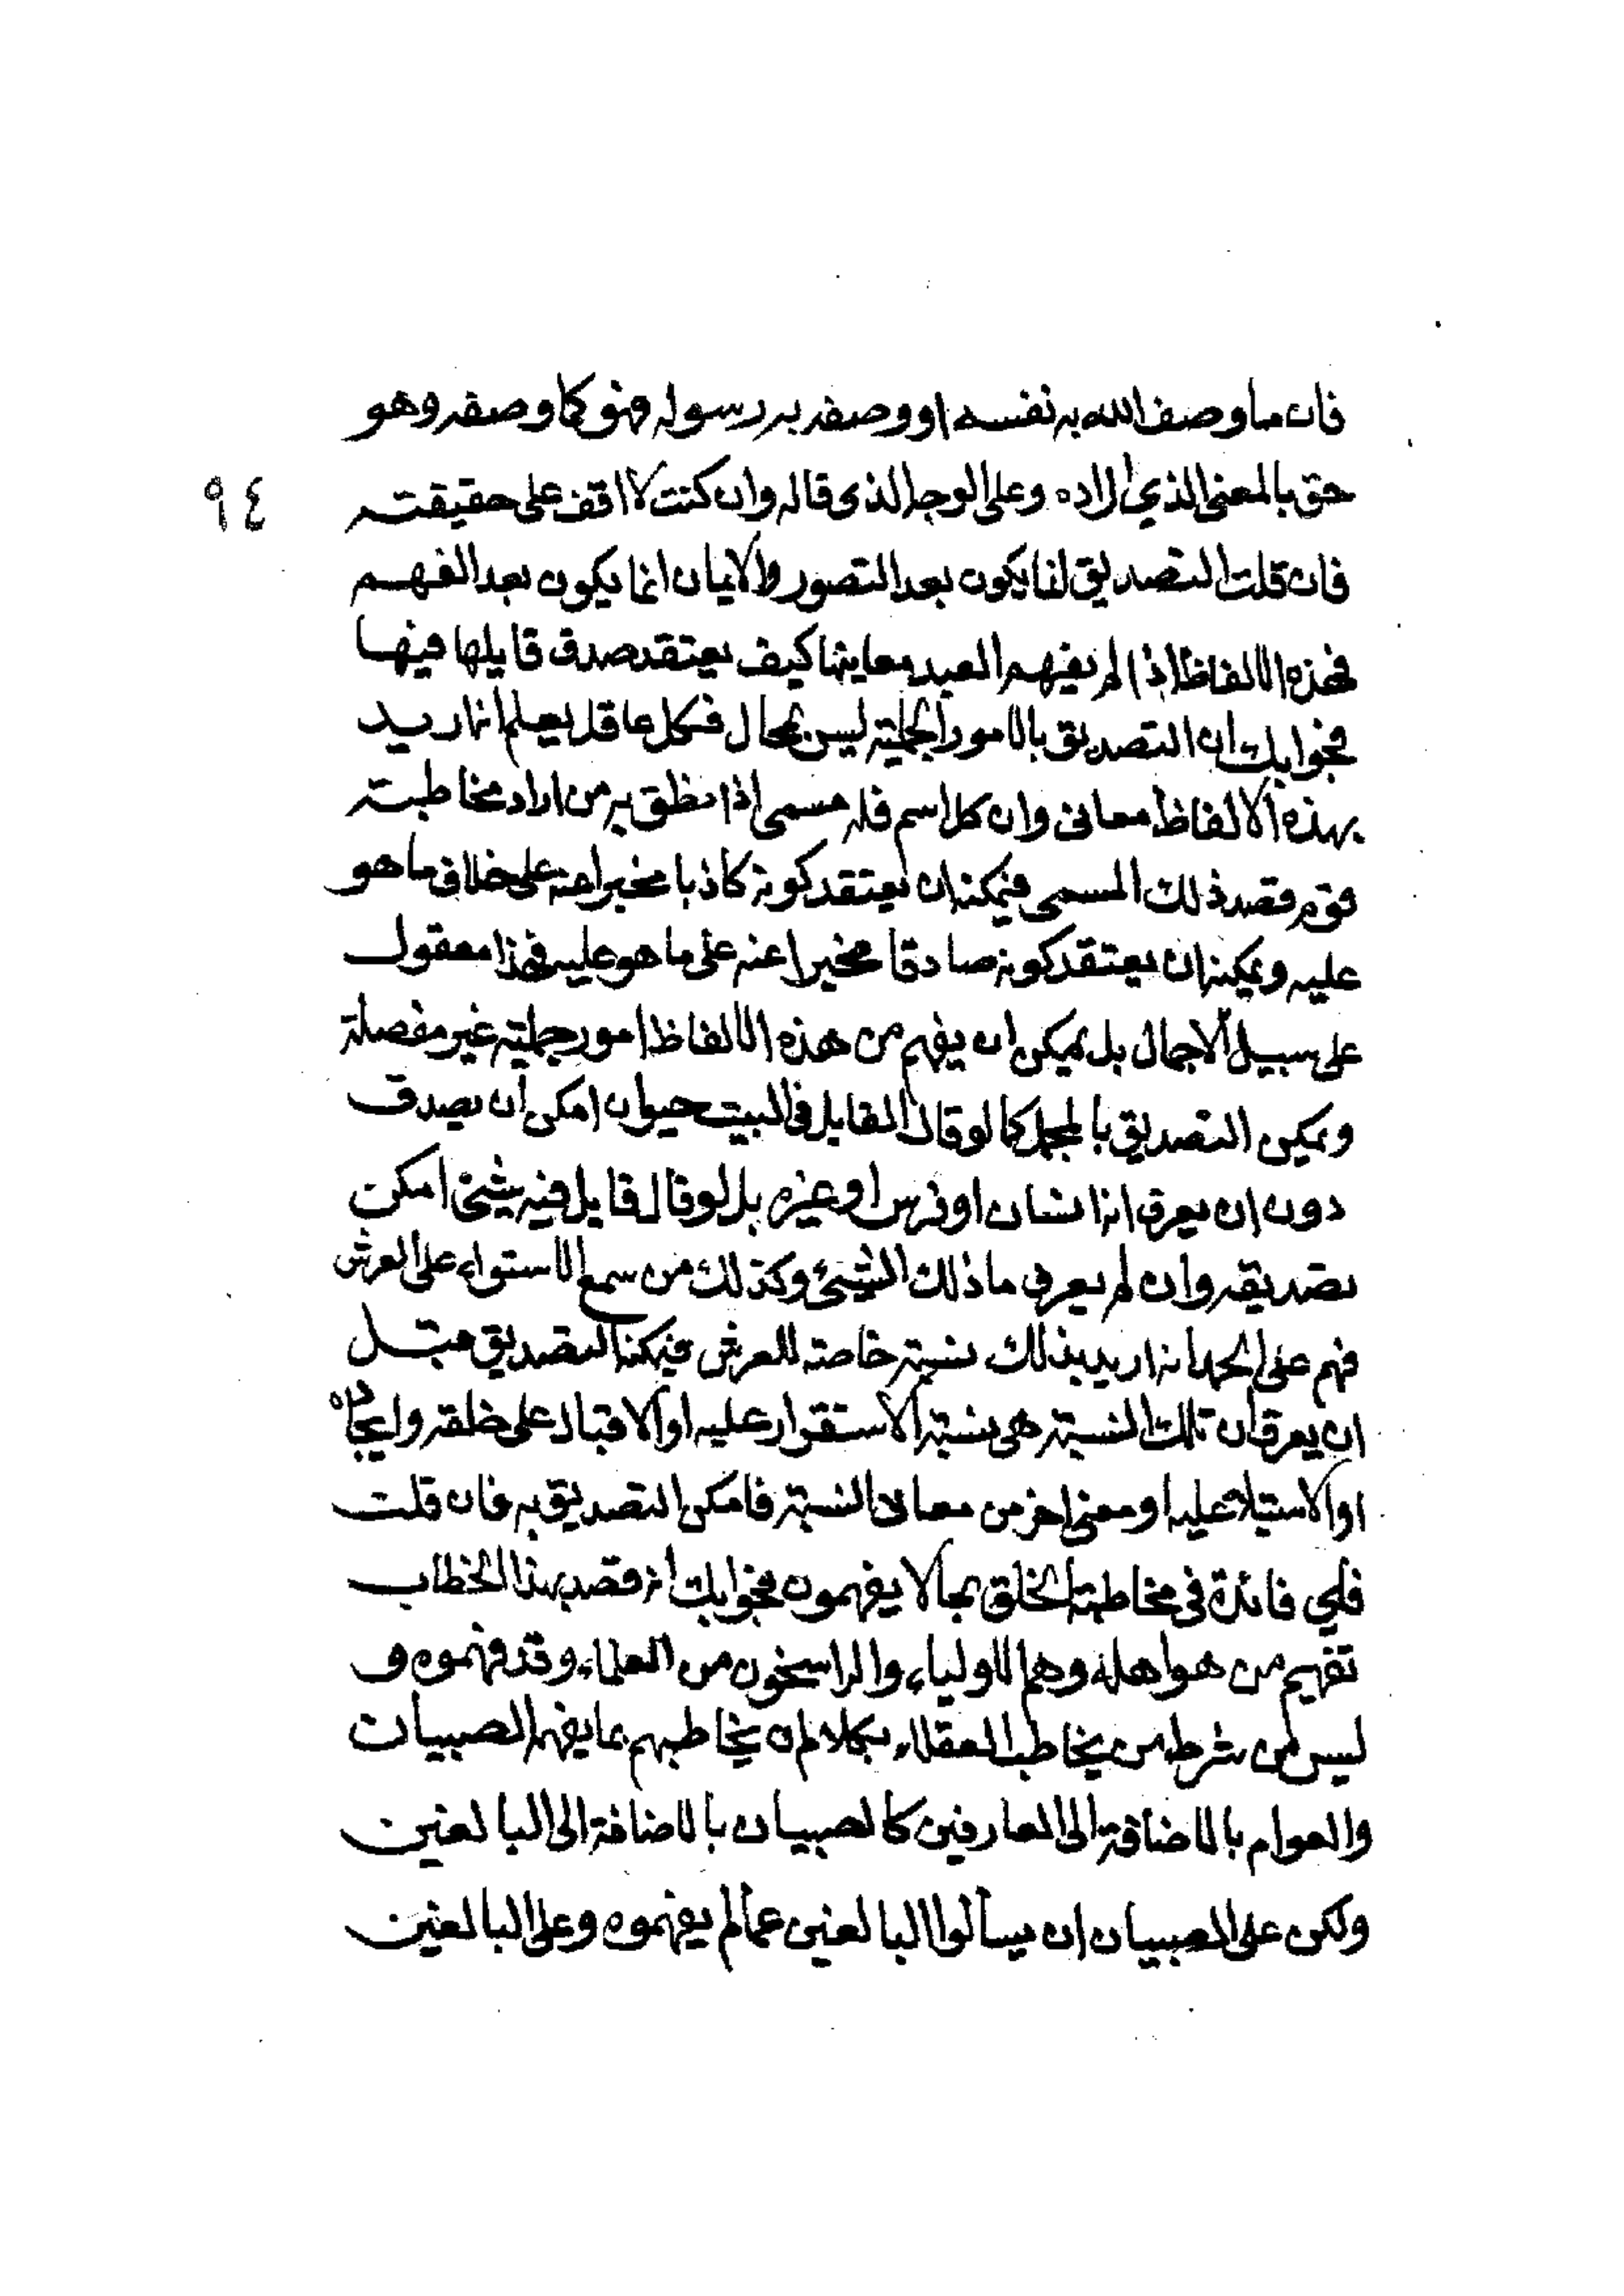 فان ما وصف الله به نفسه او وصفه به رسوله فهو كما وصفه وهو
حق بالمعنى الذي اراده وعلى الوجه الذى قاله وان كنت لا اقف على حقيقته
٩٤
فان قلت التصديق انما يكون بعد التصور والايمان انما يكون بعد الفهم
فهذه الالفاظ اذا لم يفهم العبد معاينها كيف يعتقد صدق قايلها فيها
فجوابك ان التصديق بالامور الجملية ليس بمحال فكل عاقل يعلم انه اريد
بهذه الالفاظ معانى وان كل اسم فله مسمى اذا نطق به من اراد مخاطبته
قوم قصد ذلك المسمى فيمكنه ان يعتقد كونه كاذبا مخبرا عنه على خلاف ما هو
عليه ويمكنه ان يعتقد كونه صادقا مخبرا عنه على ما هو عليه فهذا معقول
على سبيل الاجمال بل يمكن ان يفهم من هذه الالفاظ امور جملية غير مفصلة
ويمكن التصديق بالمجمل كما لو قال القايل فى البيت حيوان امكن ان يصدق
دون ان يعرف انه انسان او فرس او غيره بل لو قال قايل فيه شيئ امكن
تصديقه وان لم يعرف ما ذلك الشيئ وكذلك من سمع الاستواء على العرش
فهم على الجملة انه اريد بذلك نسبة خاصة للعرش فيمكنه التصديق قبل
ان يعرف ان تلك النسبة هى نسبة الاستقرار عليه او الاقبال على خلقه وايجاده
او الاستيلاء عليه او معنى اخر من معانى النسبة فامكن التصديق به فان قلت
فاي فائدة فى مخاطبة الخلق بما لا يفهمون فجوابك انه قصد بهذا الخطاب
تفهيم من هو اهله وهم الاولياء والراسخون من العلماء وقد فهموه و
ليس من شرط من يخاطب العقلاء بكلام ان يخاطبهم بما يفهم الصبيان
والعوام بالاضافة الى العارفين كالصبيان بالاضافة الى البالغين
ولكن على الصبيان ان يسألوا البالغين عما لم يفهموه وعلى البالغين